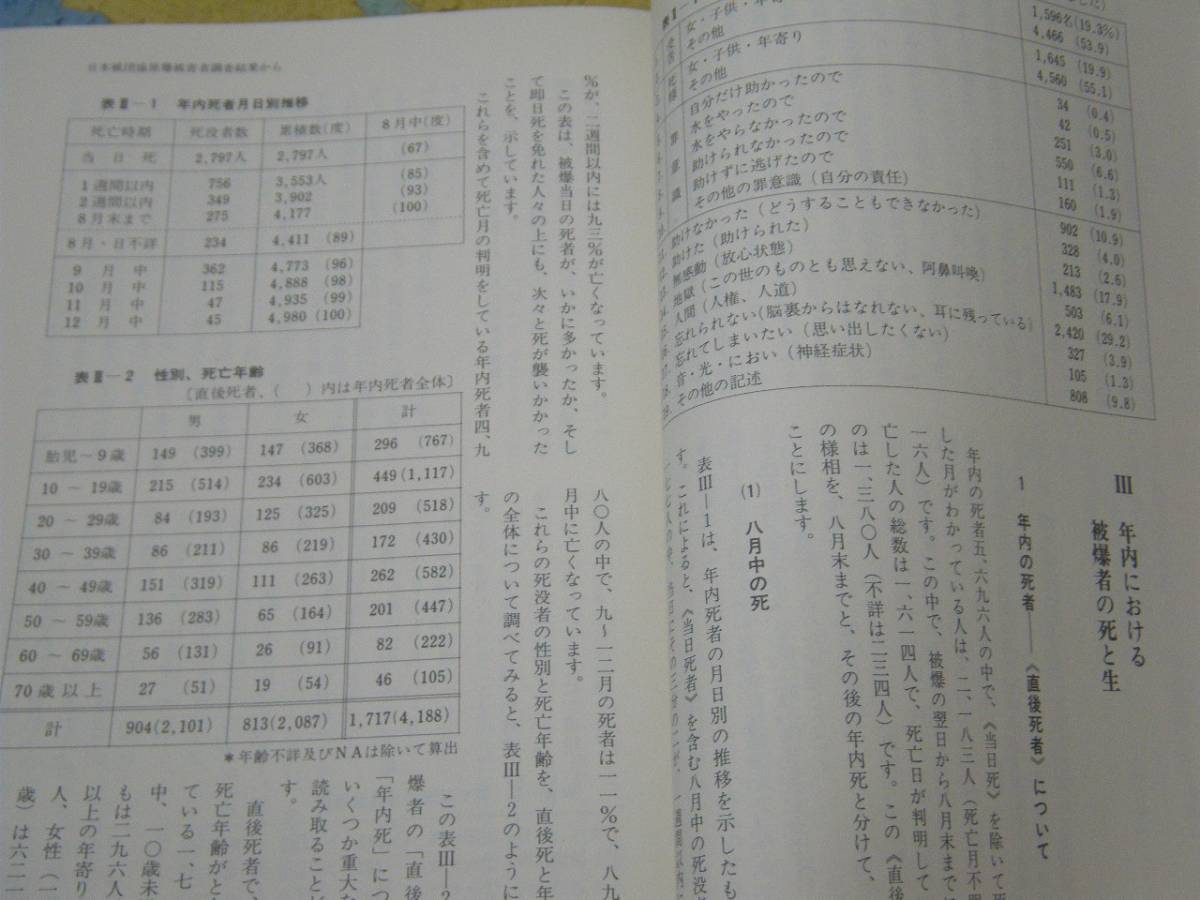 女・子供・年寄り
その他
1,596名(19.3%)
4,466 (53.9)
女・子供・年寄り
その他
1,645 (19.9)
4,560 (55.1)
自分だけ助かったので 34 (0.4)
水をやったので 42 (0.5)
水をやらなかったので 251 (3.0)
助けられなかったので 550 (6.6)
助けずに逃げたので 111 (1.3)
その他の罪意識（自分の責任） 160 (1.9)
助けなかった（どうすることもできなかった） 902 (10.9)
助けた（助けられた） 328 (4.0)
無感動（放心状態） 213 (2.6)
地獄（この世のものとも思えない、阿鼻叫喚） 1,483 (17.9)
人間（人権、人道） 503 (6.1)
忘れられない（脳裏からはなれない、耳に残っている） 2,420 (29.2)
忘れてしまいたい（思い出したくない） 327 (3.9)
音・光・におい（神経症状） 105 (1.3)
その他の記述 808 (9.8)
Ⅲ 年内における
被爆者の死と生
1 年内の死者――《直後死者》について
年内の死者五、六九六人の中で、《当日死》を除いて死
した月がわかっている人は、二、一八三人（死亡月不明
一六人）です。この中で、被爆の翌日から八月末まで
亡した人の総数は一、六一四人で、死亡日が判明して
のは一、三八〇人（不詳は二三四人）です。この《直後
の様相を、八月末までと、その後の年内死と分けて、
ことにします。
(1) 八月中の死
表Ⅲ―1は、年内死者の月日別の推移を示したも
す。これによると、《当日死者》を含む八月中の死没者
日本被団協原爆被害者調査結果から
表Ⅲ―1 年内死者月日別推移
死亡時期 死没者数 累積数(度) 8月中(度)
当日死 2,797人 2,797人 (67)
1週間以内 756 3,553人 (85)
2週間以内 349 3,902 (93)
8月末まで 275 4,177 (100)
8月・日不詳 234 4,411 (89)
9月中 362 4,773 (96)
10月中 115 4,888 (98)
11月中 47 4,935 (99)
12月中 45 4,980 (100)
%が、二週間以内には九三%が亡くなっています。
この表は、被爆当日の死者が、いかに多かったか、そし
て即日死を免れた人々の上にも、次々と死が襲いかかった
ことを、示しています。
これらを含めて死亡月の判明をしている年内死者四、九
表Ⅲ―2 性別、死亡年齢
〔直後死者、( )内は年内死者全体〕
男 女 計
胎児－9歳 149 (399) 147 (368) 296 (767)
10～19歳 215 (514) 234 (603) 449(1,117)
20～29歳 84 (193) 125 (325) 209 (518)
30～39歳 86 (211) 86 (219) 172 (430)
40～49歳 151 (319) 111 (263) 262 (582)
50～59歳 136 (283) 65 (164) 201 (447)
60～69歳 56 (131) 26 (91) 82 (222)
70歳以上 27 (51) 19 (54) 46 (105)
計 904(2,101) 813(2,087) 1,717(4,188)
＊年齢不詳及びNAは除いて算出
八〇人の中で、九～一二月の死者は一一%で、八九
月中に亡くなっています。
これらの死没者の性別と死亡年齢を、直後死と年
の全体について調べてみると、表Ⅲ―2のように
す。
この表Ⅲ―2
爆者の「直後
「年内死」につ
いくつか重大な
読み取ること
す。
直後死者で、
死亡年齢がと
ている一、七
中、一〇歳未
もは二九六人
以上の年寄り
人、女性（一
歳）は六二一